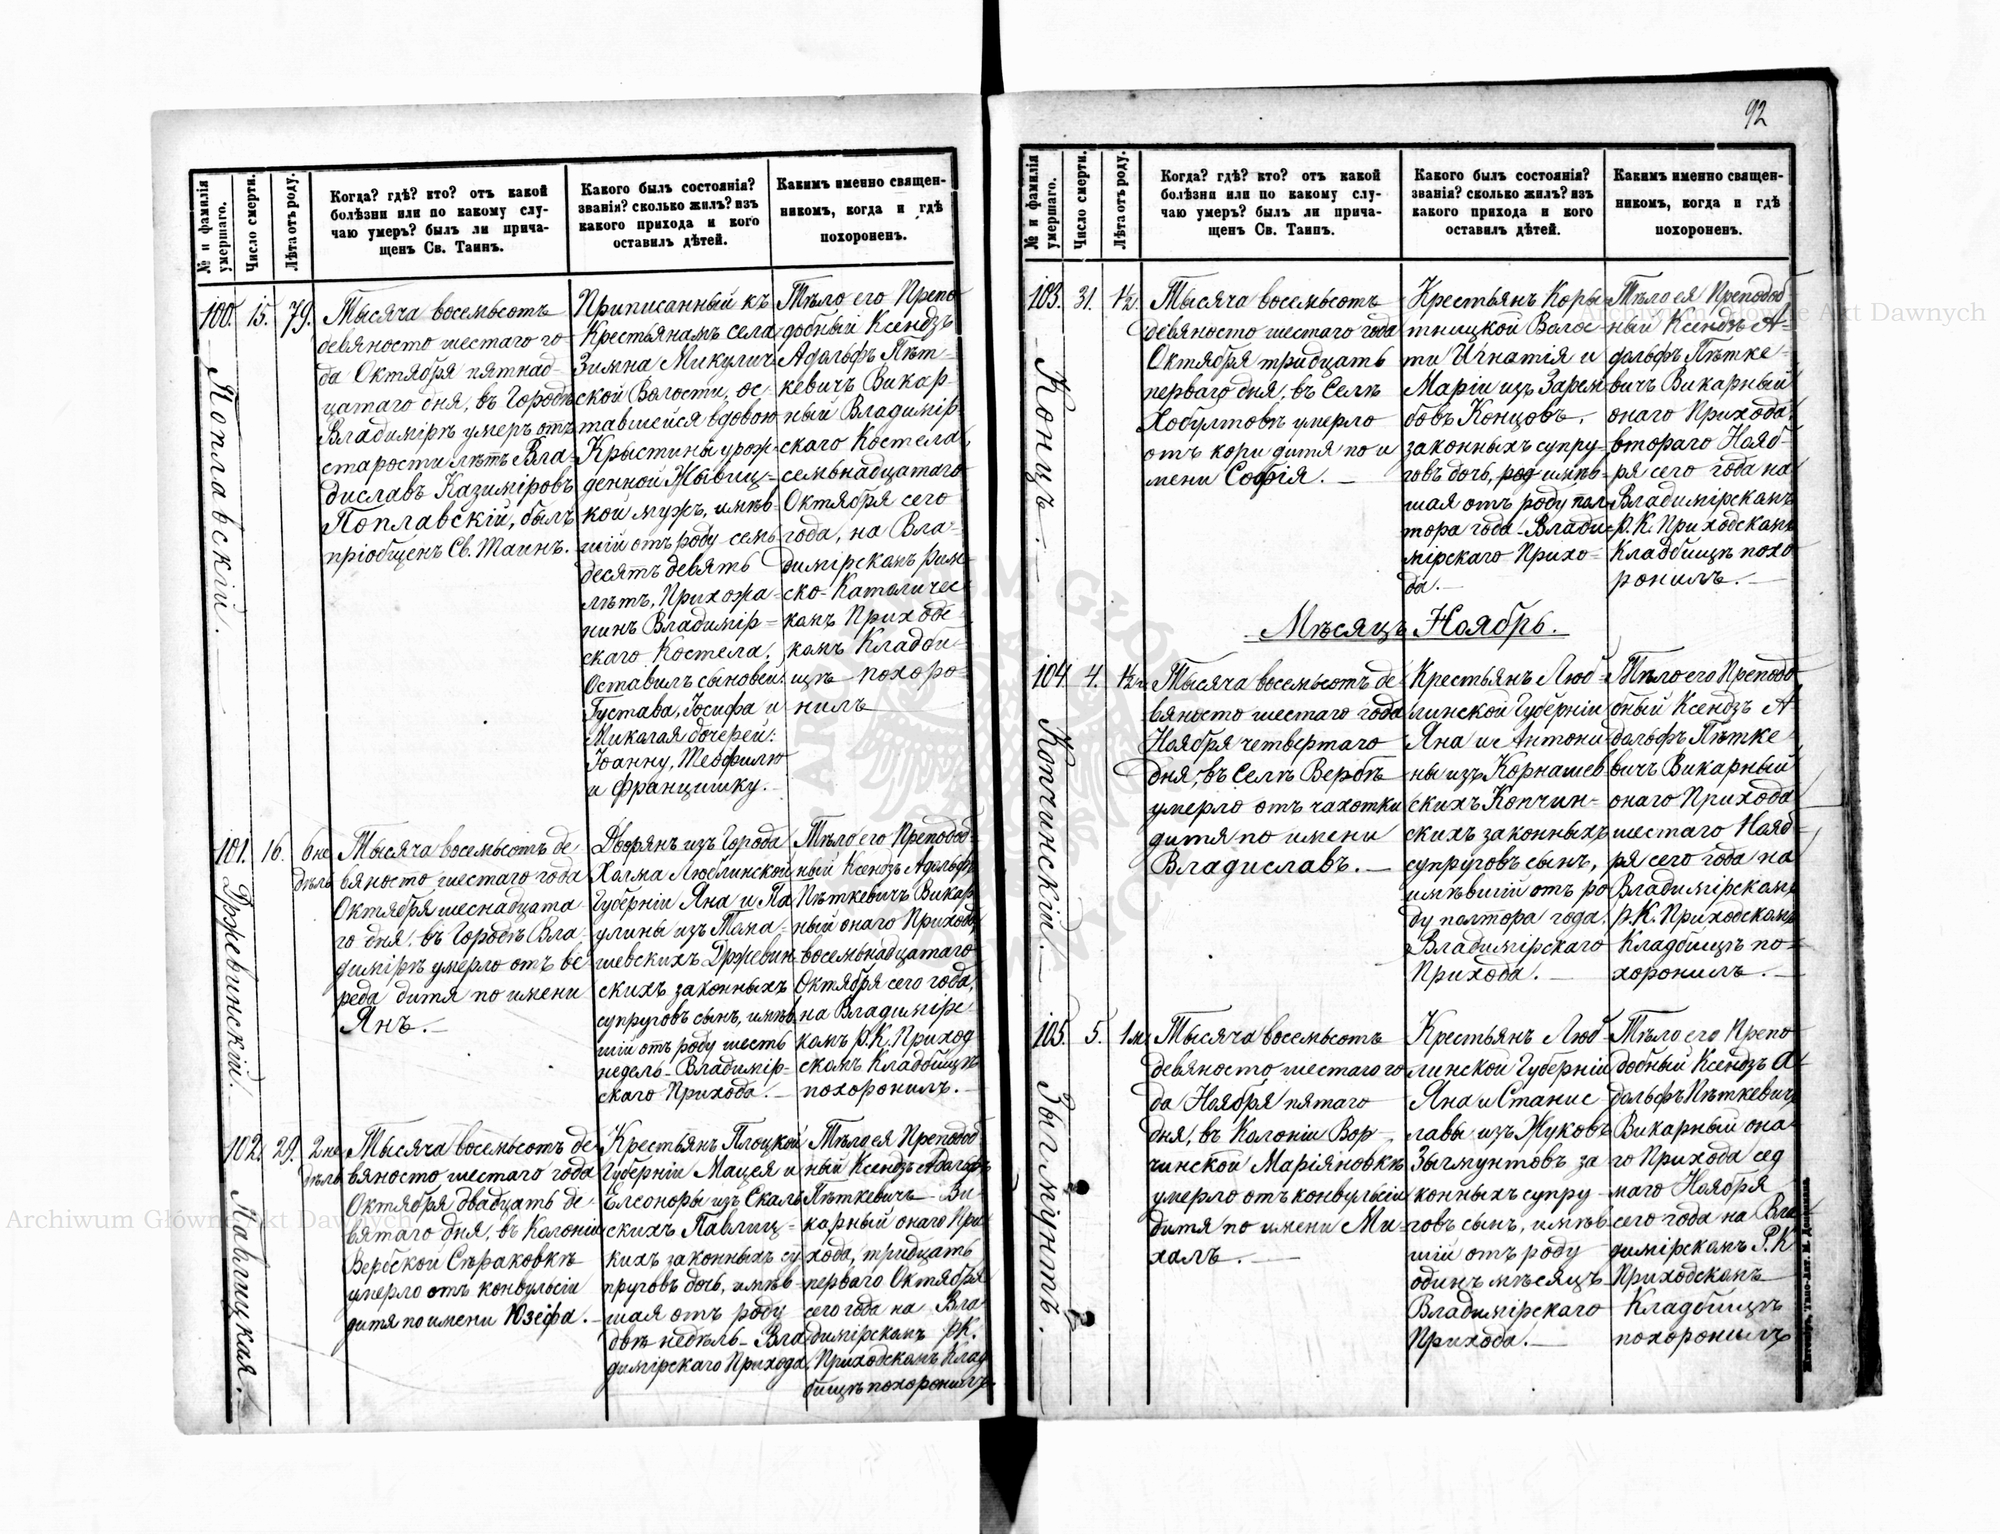 № и фамилія умершаго.
Число смерти.
Лѣта отъ роду.
Когда? гдѣ? кто? отъ какой
болѣзни или по какому слу-
чаю умеръ? былъ ли прича-
щенъ Св. Таинъ.
Какого былъ состоянія?
званія? сколько жилъ? изъ
какого прихода и кого
оставилъ дѣтей.
Каким​ъ именно священ-
никомъ, когда и гдѣ
похороненъ.
100.
15.
79.
Поплавскій.
Тысяча восемьсотъ
девяносто шестаго го
да Октября пятнад-
цатаго дня, въ Городѣ
Владимірѣ умеръ отъ
старости лѣтъ Вла-
диславъ Казиміровъ
Поплавскій, былъ
пріобщенъ Св. Таинъ.
Приписанный къ
Крестьянамъ села
Зимна Микулич-
ской Волости, ос
тавшейся вдовою
Крыстины урож-
денной Жывиц-
кой мужъ, имѣв-
шій отъ роду семь
десятъ девять
лѣтъ, Прихожа-
нинъ Владимір-
скаго Костела.
Оставилъ сыновей:
Густава, Іосифа и
Миколая дочерей:
Іоанну, Теофилю
и Францишку.
Тѣло его Препо
добный Ксендзъ
Адольфъ Пѣт-
кевичъ Викар-
ный Владимір-
скаго Костела
семьнадцатаго
Октября сего
года, на Вла-
димірскомъ Рим-
ско-Католичес
комъ Приходс-
комъ Кладби-
щѣ похоро-
нилъ
101.
16.
6 не
дѣль
Држевинскій.
Тысяча восемьсотъ де-
вяносто шестаго года
Октября шеснадцата
го дня, въ Городѣ Вла-
димірѣ умерло отъ ве
реда дитя по имени
Янъ.
Дворянъ изъ Города
Холма Люблинской
Губерніи Яна и Па
улины изъ Тома-
шевскихъ Држевин
скихъ законныхъ
супруговъ сынъ, имѣв
шій отъ роду шесть
недель Владимір-
скаго Прихода.
Тѣло его Преподоб-
ный Ксендзъ Адольфъ
Пѣткевичъ Викар
ный онаго Прихода
восемьнадцатаго
Октября сего года,
на Владимірс-
комъ Р.К. Приход
скомъ Кладбищѣ
похоронилъ.
102.
29.
2 не
дѣль
Павлицкая.
Тысяча восемьсотъ де
вяносто шестаго года
Октября двадцать де-
вятаго дня, въ Колоніи
Вербской Сѣраковкѣ
умерло отъ конвульсіи
дитя по имени Юзефа.
Крестьянъ Плоцкой
Губерніи Мацея и
Елеоноры изъ Сколь
скихъ Павлиц-
кихъ законныхъ су
пруговъ дочь, имѣв-
шая отъ роду
двѣ недѣль Вла
димірскаго Прихода
Тѣло ея Преподоб
ный Ксендзъ Адольфъ
Пѣткевичъ Ви-
карный онаго При
хода, тридцать
перваго Октября
сего года на Вла
димірскомъ Р.К.
Приходскомъ Клад
бищѣ похоронилъ
92
№ и фамилія умершаго.
Число смерти.
Лѣта отъ роду.
Когда? гдѣ? кто? отъ какой
болѣзни или по какому слу-
чаю умеръ? былъ ли прича-
щенъ Св. Таинъ.
Какого былъ состоянія?
званія? сколько жилъ? изъ
какого прихода и кого
оставилъ дѣтей.
Какимъ именно священ-
никомъ, когда и гдѣ
похороненъ.
103.
31.
1½.
Концъ.
Тысяча восемьсотъ
девяносто шестаго года
Октября тридцать
перваго дня, въ Селѣ
Хобултовѣ умерло
отъ кори дитя по и
мени Софія.
Крестьянъ Коры
тницкой Волос
ти Игнатія и
Маріи изъ Зарем
бовъ Концовъ
законныхъ супру-
говъ дочь, род имѣв-
шая отъ роду пол
тора года Влади-
мірскаго Прихо-
да.
Тѣло ея Преподоб
ный Ксендзъ А-
дольфъ Пѣтке-
вичъ Викарный
онаго Прихода
втораго Нояб-
ря сего года на
Владимірскомъ
Р.К. Приходскомъ
Кладбищѣ похо
ронилъ.
Мѣсяцъ Ноябрь.
104.
4.
1½
Копчинскій.
Тысяча восемьсотъ де
вяносто шестаго года
Ноября четвертаго
дня, въ Селѣ Вербѣ
умерло отъ чахотки
дитя по имени
Владиславъ.
Крестьянъ Люб-
линской Губерніи
Яна и Антони-
ны изъ Корнашев
скихъ Копчин-
скихъ законныхъ
супруговъ сынъ,
имѣвшій отъ ро
ду полтора года
Владимірскаго
Прихода.
Тѣло его Преподо
бный Ксендзъ А
дольфъ Пѣтке
вичъ Викарный
онаго Прихода
шестаго Нояб-
ря сего года на
Владимірскомъ
Р.К. Приходскомъ
Кладбищѣ по-
хоронилъ.
105.
5.
1 м.
Зыгмунтъ.
Тысяча восемьсотъ
девяносто шестаго го
да Ноября пятаго
дня, въ Колоніи Вор-
чинской Маріяновкѣ
умерло отъ конвульсіи
дитя по имени Ми-
халъ.
Крестьянъ Люб
линской Губерніи
Яна и Станис
лавы изъ Жуковъ
Зыгмунтовъ за
конныхъ супру-
говъ сынъ, имѣв
шій отъ роду
одинъ мѣсяцъ
Владимірскаго
Прихода.
Тѣло его Препо
добный Ксендзъ А-
дольфъ Пѣткевичъ
Викарный она-
го Прихода сед
маго Ноября
сего года на Вла
димірскомъ Р.К
Приходскомъ
Кладбищѣ
похоронилъ
Archiwum Główne Akt Dawnych
Archiwum Główne Akt Dawnych